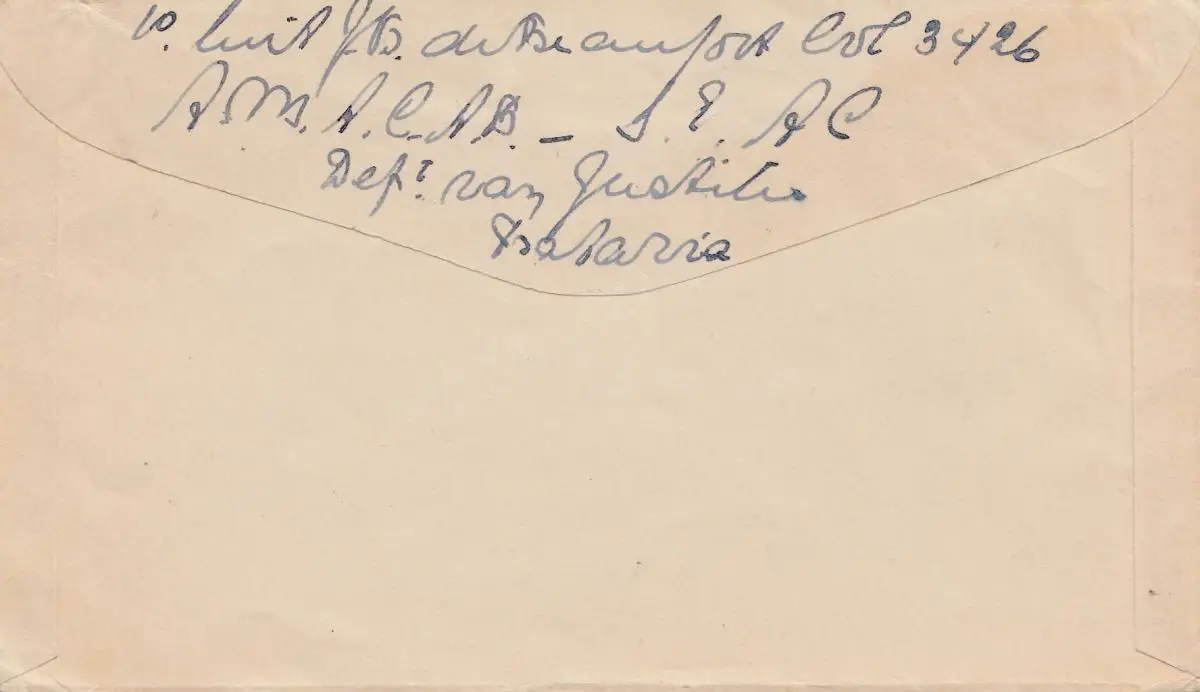 10. Luit J.B. de Beaufort Cvl 3426
A.M.A.C.A.B. – S.E. AC
Dept. van Justitie
Batavia